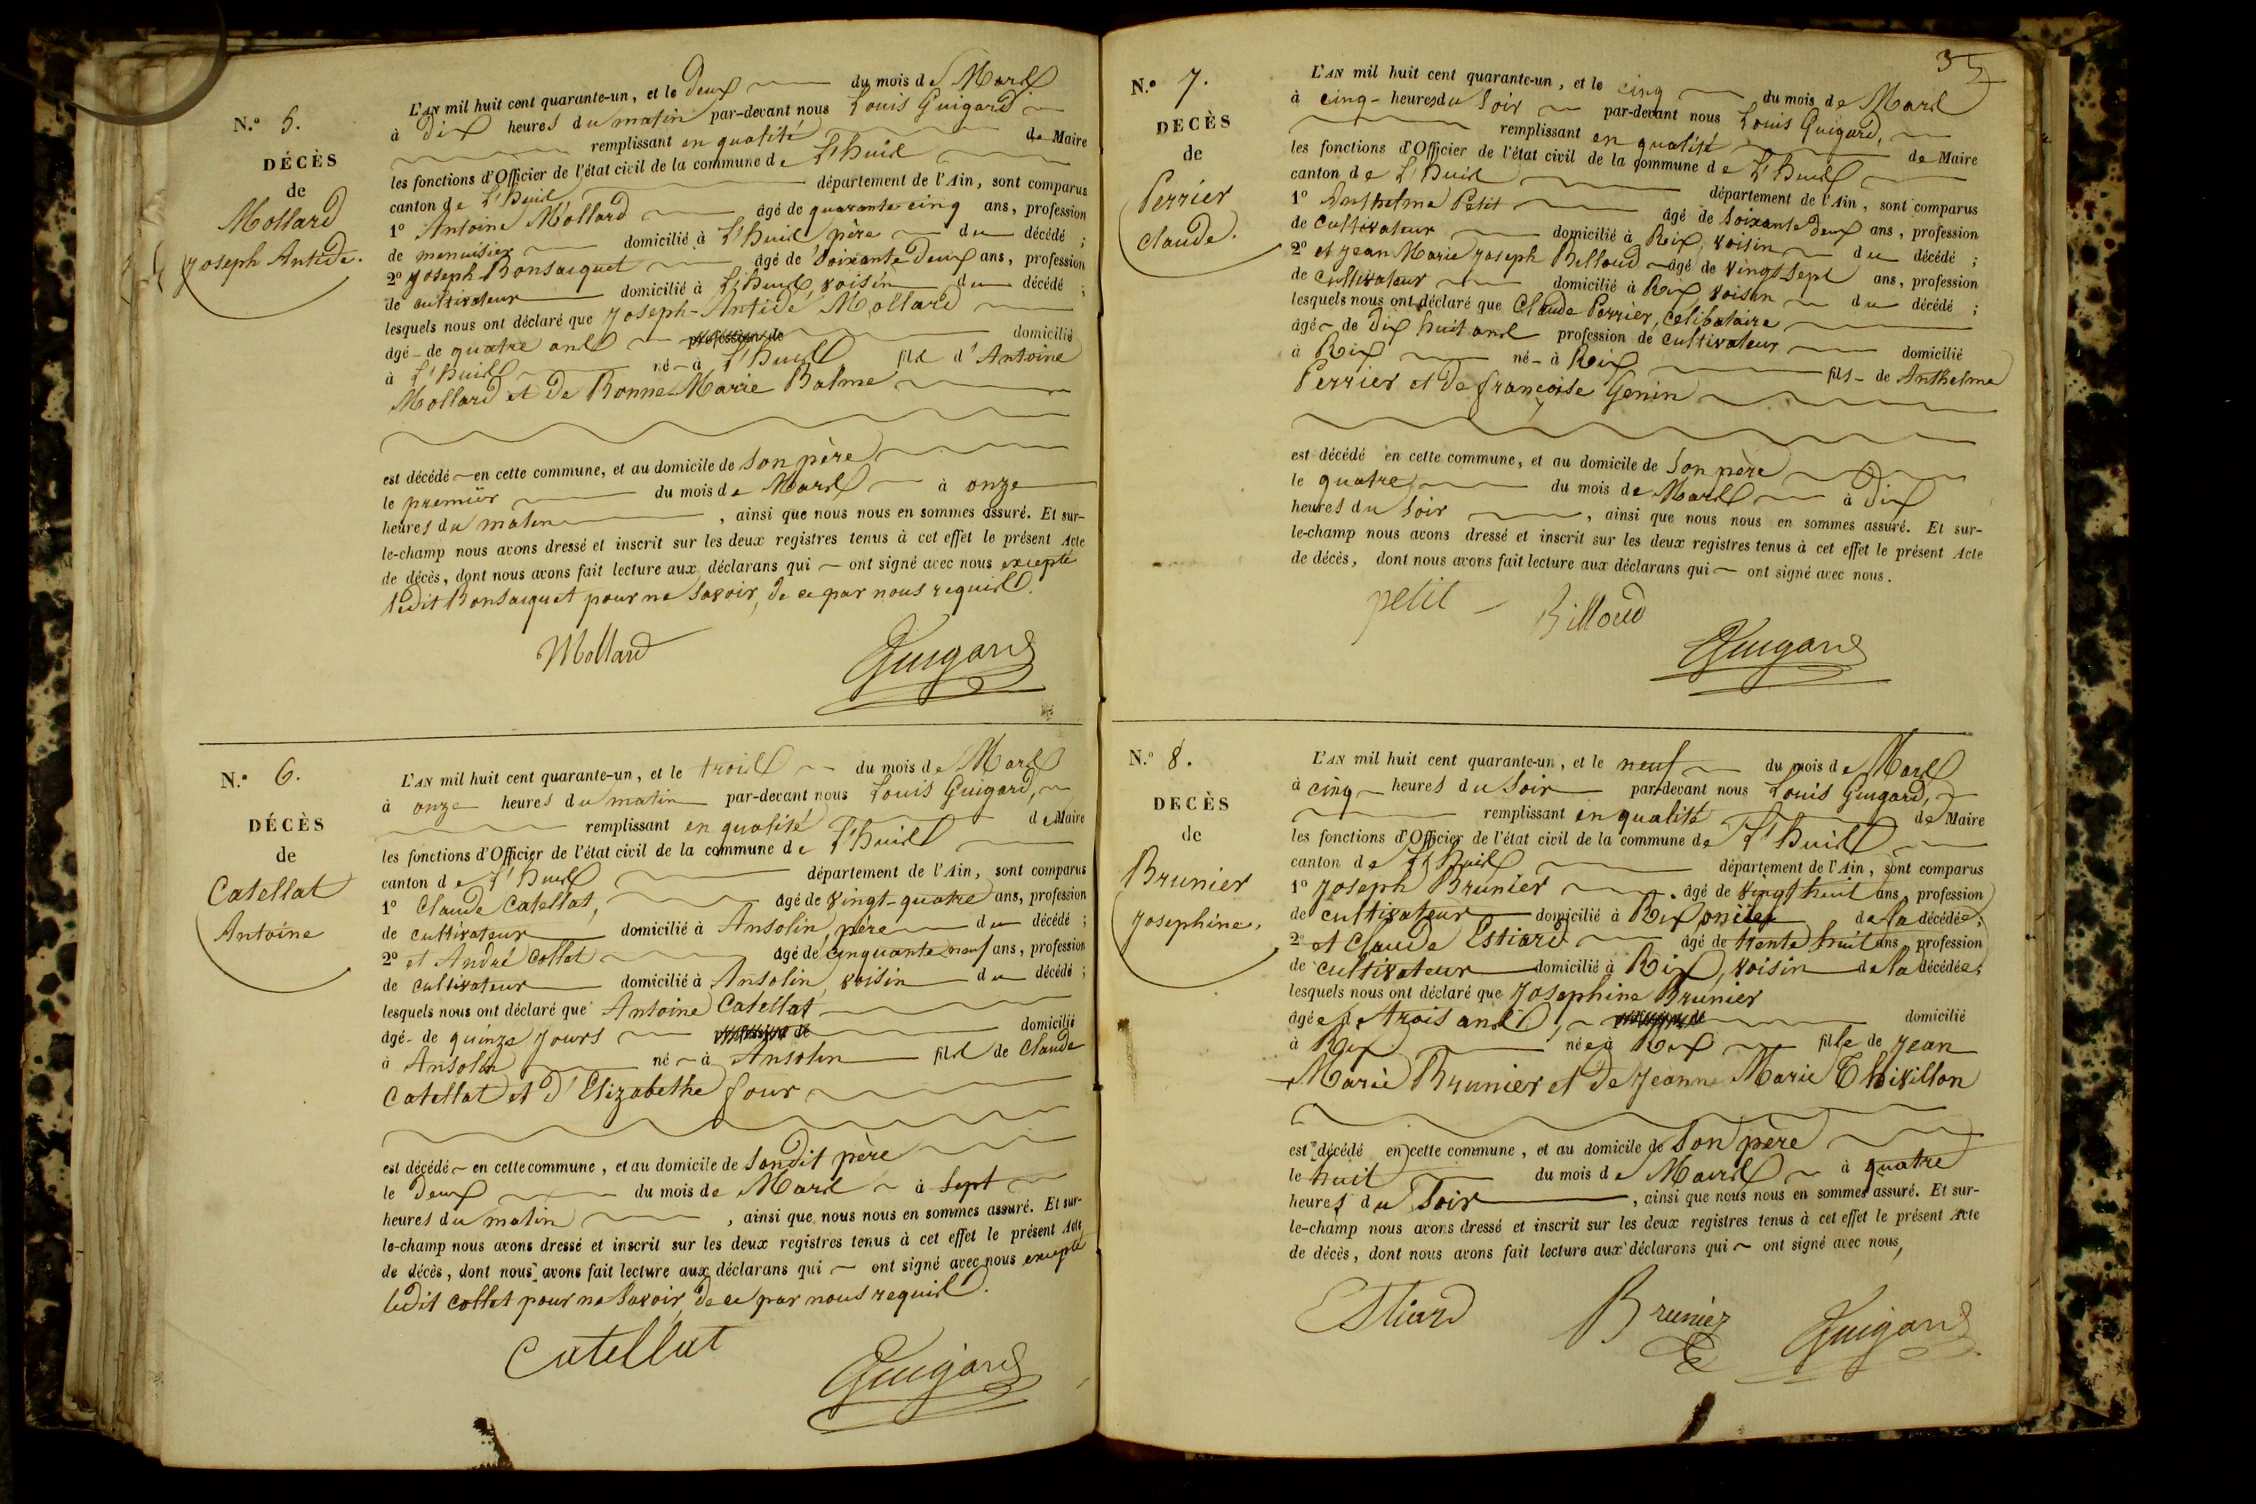 N.° 5.
DÉCÈS
de
Mollard
Joseph Antide.
L'AN mil huit cent quarante-un, et le deux du mois de Mars
à dix heures du matin par-devant nous Louis Guigard
remplissant en qualité de Maire
les fonctions d'Officier de l'état civil de la commune de L'huis
canton de L'huis département de l'Ain, sont comparus
1° Antoine Mollard âgé de quarante cinq ans, profession
de menuisier domicilié à L'huis père du décédé ;
2° Joseph Bonsacquet âgé de soixante deux ans, profession
de cultivateur domicilié à L'huis, voisin du décédé ;
lesquels nous ont déclaré que Joseph-Antide Mollard
âgé de quatre ans profession de domicilié
à L'huis né à L'huis fils d'Antoine
Mollard et de Bonne Marie Balme
est décédé en cette commune, et au domicile de son père
le premier du mois de Mars à onze
heures du matin, ainsi que nous nous en sommes assuré. Et sur-
le-champ nous avons dressé et inscrit sur les deux registres tenus à cet effet le présent Acte
de décès, dont nous avons fait lecture aux déclarans qui ont signé avec nous excepté
ledit Bonsacquet pour ne savoir, de ce par nous requis.
Mollard Guigard
N.° 6.
DÉCÈS
de
Catellat
Antoine
L'AN mil huit cent quarante-un, et le trois du mois de Mars
à onze heures du matin par-devant nous Louis Guigard,
remplissant en qualité de Maire
les fonctions d'Officier de l'état civil de la commune de L'huis
canton de L'huis département de l'Ain, sont comparus
1° Claude Catellat, âgé de vingt-quatre ans, profession
de cultivateur domicilié à Ansolin, père du décédé ;
2° et André Collet âgé de cinquante neuf ans, profession
de cultivateur domicilié à Ansolin, voisin du décédé ;
lesquels nous ont déclaré que Antoine Catellat
âgé de quinze jours profession de domicilié
à Ansolin né à Ansolin fils de Claude
Catellat et d'Elizabethe four
est décédé en cette commune, et au domicile de sondit père
le deux du mois de Mars à sept
heures du matin, ainsi que nous nous en sommes assuré. Et sur-
le-champ nous avons dressé et inscrit sur les deux registres tenus à cet effet le présent Acte
de décès, dont nous avons fait lecture aux déclarans qui ont signé avec nous excepté
ledit Collet pour ne savoir, de ce par nous requis.
Catellat Guigard
35
N.° 7.
DÉCÈS
de
Perrier
Claude.
L'AN mil huit cent quarante-un, et le cinq du mois de Mars
à cinq heures du soir par-devant nous Louis Guigard,
remplissant en qualité de Maire
les fonctions d'Officier de l'état civil de la commune de L'huis
canton de L'huis département de l'Ain, sont comparus
1° Anthelme Petit âgé de soixante deux ans, profession
de cultivateur domicilié à Rix, voisin du décédé ;
2° et Jean Marie Joseph Billoud âgé de vingt sept ans, profession
de cultivateur domicilié à Rix, voisin du décédé ;
lesquels nous ont déclaré que Claude Perrier, célibataire
âgé de dix huit ans profession de cultivateur domicilié
à Rix né à Rix fils de Anthelme
Perrier et de françoise Genin
est décédé en cette commune, et au domicile de son père
le quatre du mois de Mars à dix
heures du soir, ainsi que nous nous en sommes assuré. Et sur-
le-champ nous avons dressé et inscrit sur les deux registres tenus à cet effet le présent Acte
de décès, dont nous avons fait lecture aux déclarans qui ont signé avec nous.
petit Billoud
Guigard
N.° 8.
DÉCÈS
de
Brunier
Josephine.
L'AN mil huit cent quarante-un, et le neuf du mois de Mars
à cinq heures du soir par-devant nous Louis Guigard,
remplissant en qualité de Maire
les fonctions d'Officier de l'état civil de la commune de L'huis
canton de L'huis département de l'Ain, sont comparus
1° Joseph Brunier âgé de vingt huit ans, profession
de cultivateur domicilié à Rix, oncle de la décédée ;
2° et Claude Estiard âgé de trente huit ans profession
de cultivateur domicilié à Rix, voisin de la décédée ;
lesquels nous ont déclaré que Josephine Brunier
âgée de trois ans, profession de domicilié
à Rix née à Rix fille de Jean
Marie Brunier et de Jeanne Marie Thivillon
est décédé en cette commune, et au domicile de son père
le huit du mois de Mars à quatre
heures du soir, ainsi que nous nous en sommes assuré. Et sur-
le-champ nous avons dressé et inscrit sur les deux registres tenus à cet effet le présent Acte
de décès, dont nous avons fait lecture aux déclarans qui ont signé avec nous,
Estiard Brunier Guigard